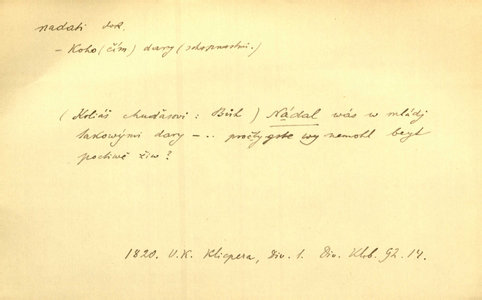 nadati dok.
– Koho (čím) dary (schopnostmi.)
( Koliáš chuďasovi: Bůh ) Nádal wás w mládj
takowými dary – .. pročby gste wy nemohl beyt
poctiwě žiw?
1820. V.K. Klicpera, Div. 1. Div. Klob. 92. 14.